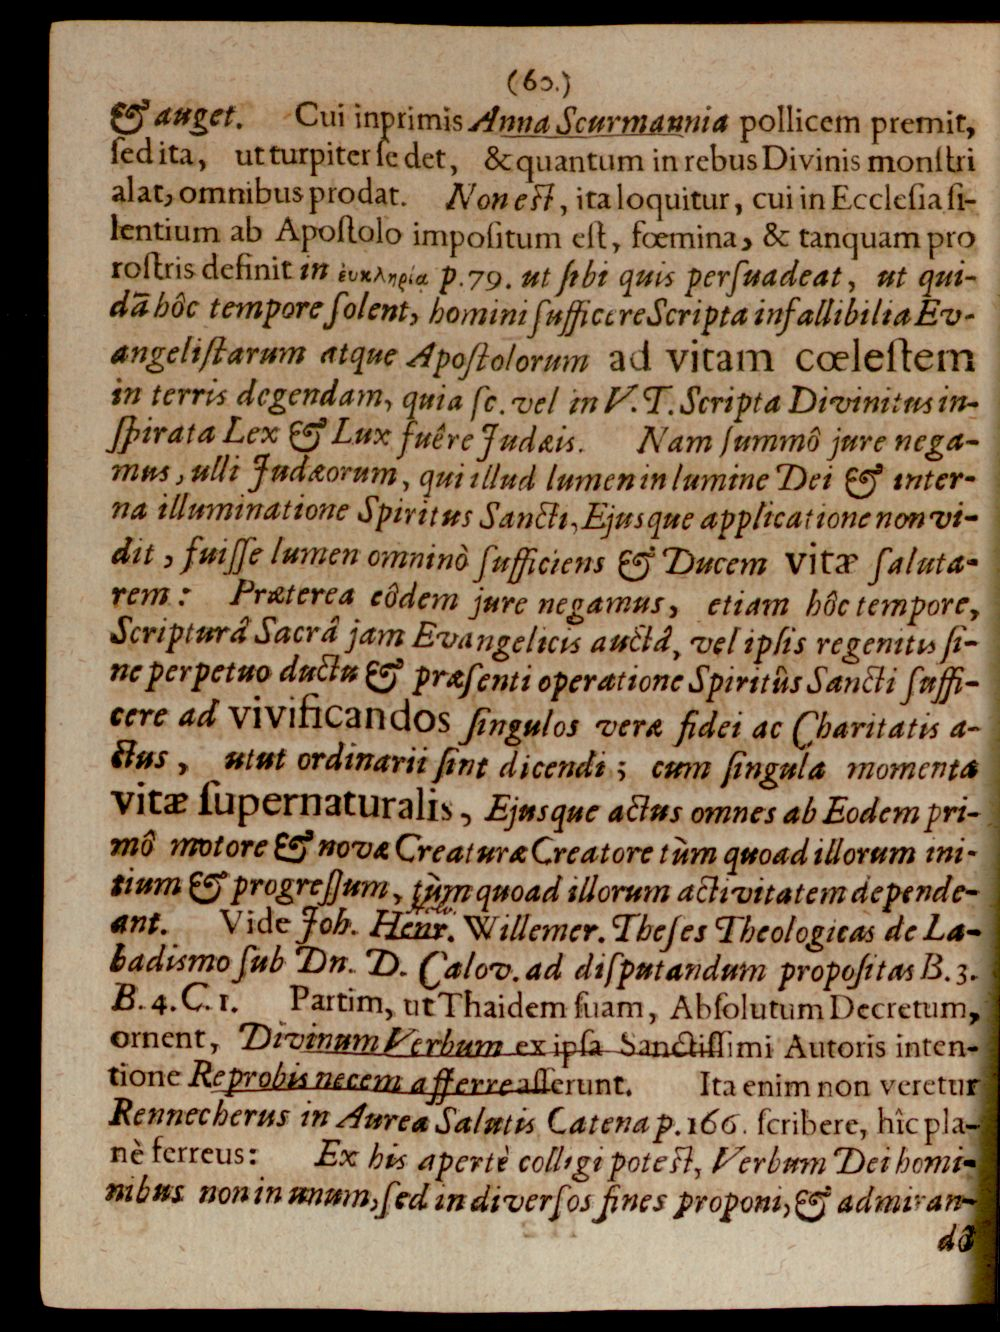 (60.)
& auget. Cui inprimis Anna Scurmannia pollicem premit,
ſed ita, ut turpiter ſe det, & quantum in rebus Divinis monſtri
alat, omnibus prodat. Non eſt, ita loquitur, cui in Eccleſia ſi-
lentium ab Apoſtolo impoſitum eſt, fœmina, & tanquam pro
roſtris definit in ἐυκληρία p. 79. ut ſibi quis perſuadeat, ut qui-
dā hôc tempore ſolent, homini ſufficere Scripta infallibilia Ev-
angeliſtarum atque Apoſtolorum ad vitam cœleſtem
in terris degendam, quia ſc. vel in V. T. Scripta Divinitus in-
ſpirata Lex & Lux fuêre Judæis. Nam ſummô jure nega-
mus, ulli Judæorum, qui illud lumen in lumine Dei & inter-
na illuminatione Spiritus Sancti, Ejusque applicatione non vi-
dit, fuiſſe lumen omninò ſufficiens & Ducem vitæ ſaluta-
rem: Præterea eôdem jure negamus, etiam hôc tempore,
Scripturâ Sacrâ jam Evangelicis auctâ, vel ipſis regenitis ſi-
ne perpetuo ductu & præſenti operatione Spiritûs Sancti ſuffi-
cere ad vivificandos ſingulos veræ fidei ac Charitatis a-
ctus, utut ordinarii ſint dicendi; cum ſingula momenta
vitæ ſupernaturalis, Ejusque actus omnes ab Eodem pri-
mô motore & novæ Creaturæ Creatore tùm quoad illorum ini-
tium & progreſſum, tùm quoad illorum activitatem depende-
ant. Vide Joh. Henr. Willemer. Theſes Theologicas de La-
badismo ſub Dn. D. Calov. ad diſputandum propoſitas B. 3.
B. 4. C. 1. Partim, ut Thaidem ſuam, Abſolutum Decretum,
ornent, Divinum Verbum ex ipſa Sanctiſſimi Autoris inten-
tione Reprobis necem afferre aſſerunt. Ita enim non veretur
Rennecherus in Aurea Salutis Catena p. 166. ſcribere, hîc pla-
nè ferreus: Ex his apertè colligi poteſt, Verbum Dei homi-
nibus non in unum, ſed in diverſos fines proponi, & admiran-
dâ